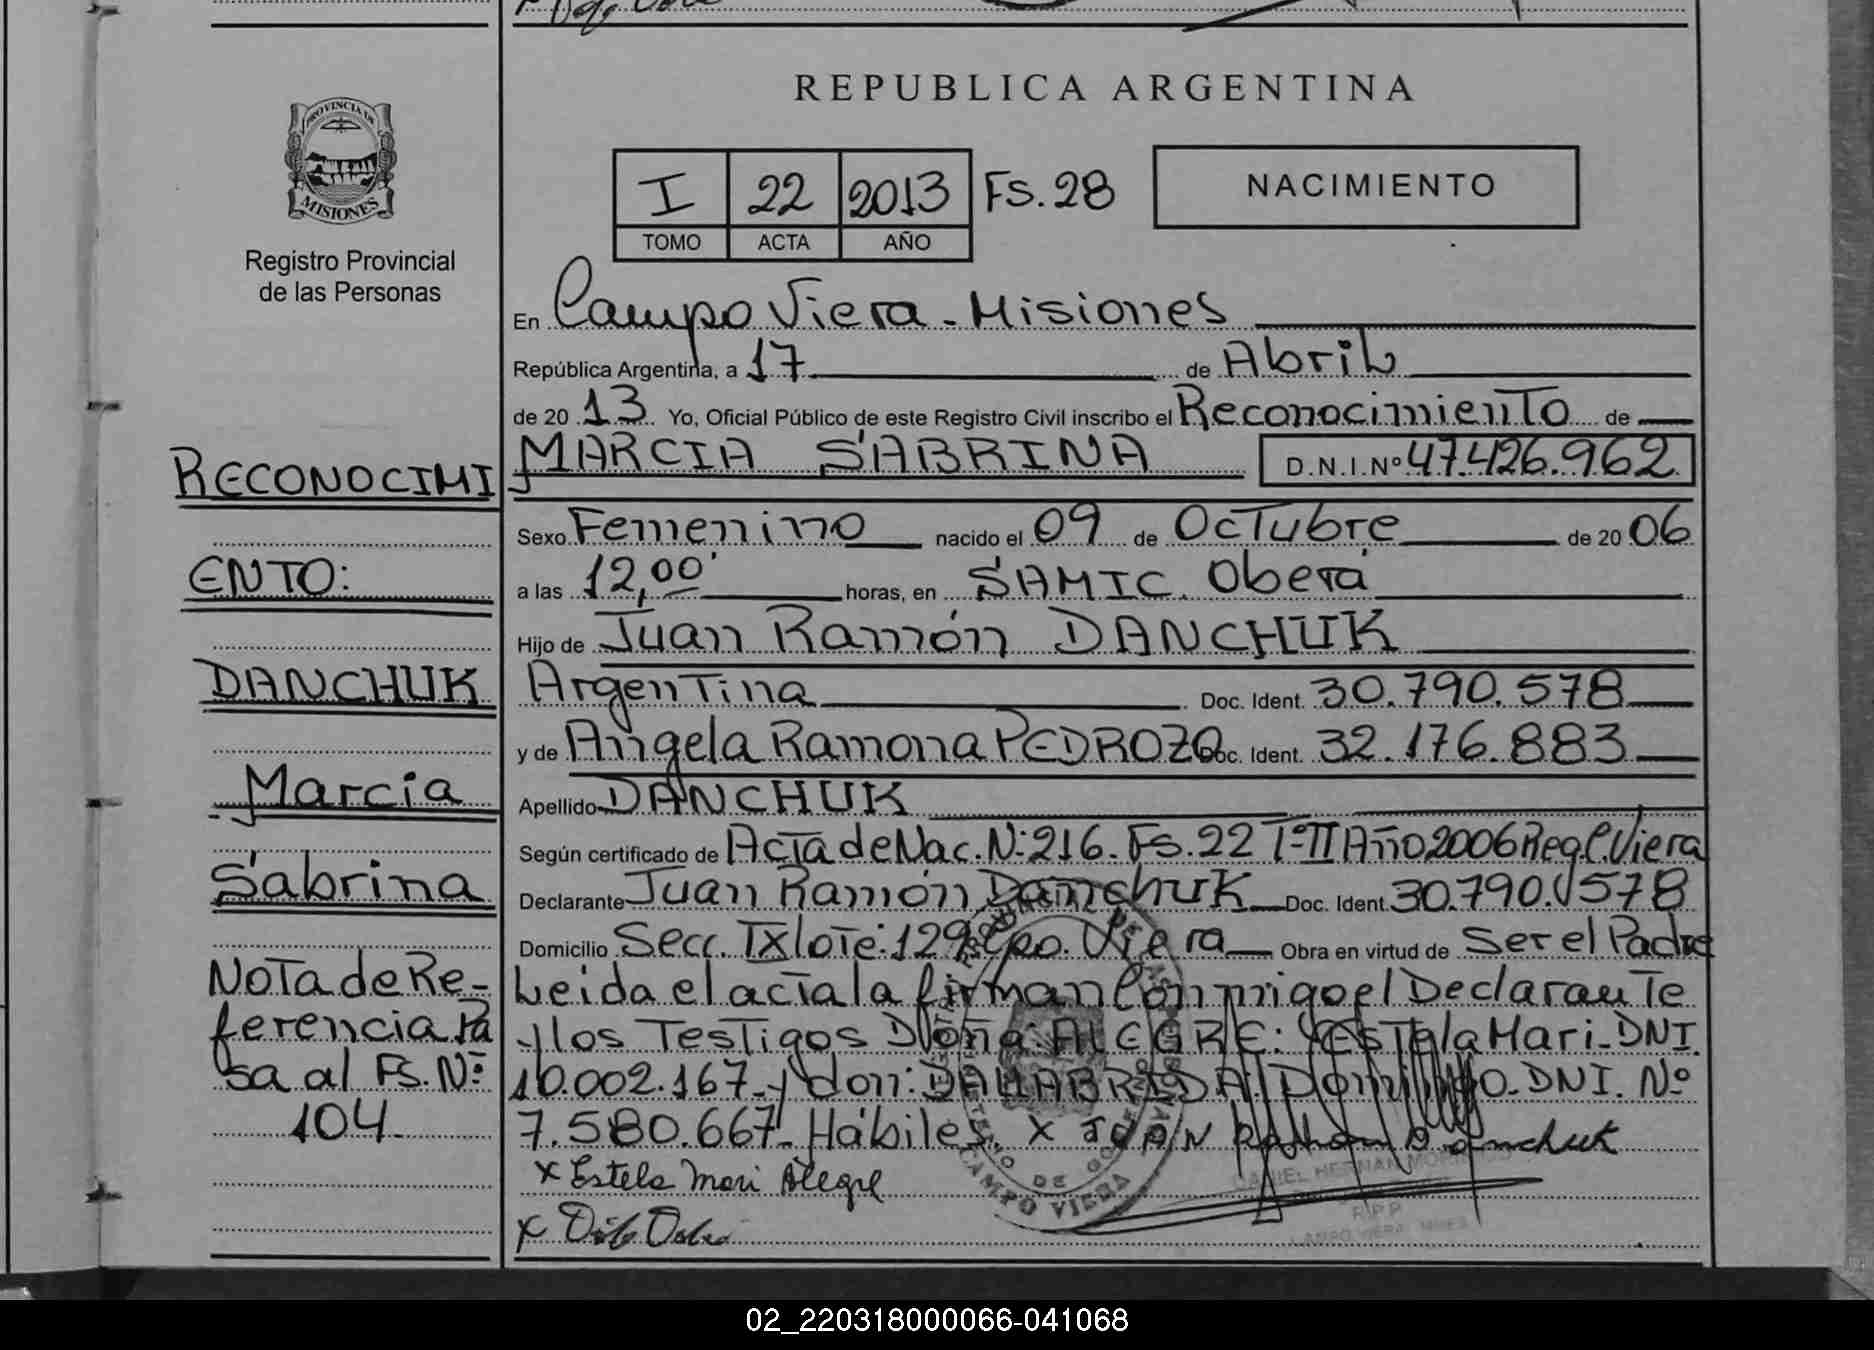 REPUBLICA ARGENTINA
PROVINCIA DE
MISIONES
Registro Provincial
de las Personas
I 22 2013 Fs. 28
TOMO ACTA AÑO
NACIMIENTO
En Campo Viera - Misiones
República Argentina, a 17 de Abril
de 20 13 Yo, Oficial Público de este Registro Civil inscribo el Reconocimiento de
MARCIA SABRINA D.N.I.Nº 47.426.962
Sexo Femenino nacido el 09 de Octubre de 20 06
a las 12,00' horas, en SAMIC. Oberá
Hijo de Juan Ramón DANCHUK
Argentina Doc. Ident. 30.790.578
y de Angela Ramona PEDROZO Doc. Ident. 32.176.883
Apellido DANCHUK
Según certificado de Acta de Nac. Nº 216. Fs. 22 Tº II Año 2006 Reg. C. Viera
Declarante Juan Ramón Danchuk Doc. Ident. 30.790.578
Domicilio Secc. IX lote: 129 Cpo. Viera Obra en virtud de Ser el Padre
Leida el acta la firman Conmigo el Declarante
y los Testigos Doña: ALEGRE: Estela Mari - DNI.
10.002.167- y don: DAHABREDA Domingo - DNI. Nº
7.580.667- Hábiles. x JUAN Ramon Danchuk
x Estela Mari Alegre
x
RECONOCIMI
ENTO:
DANCHUK
Marcia
Sabrina
Nota de Re-
ferencia Pa
sa al Fs. Nº
104
CAMPO VIERA
DANIEL HERNAN
R.P.P.
02_220318000066-041068